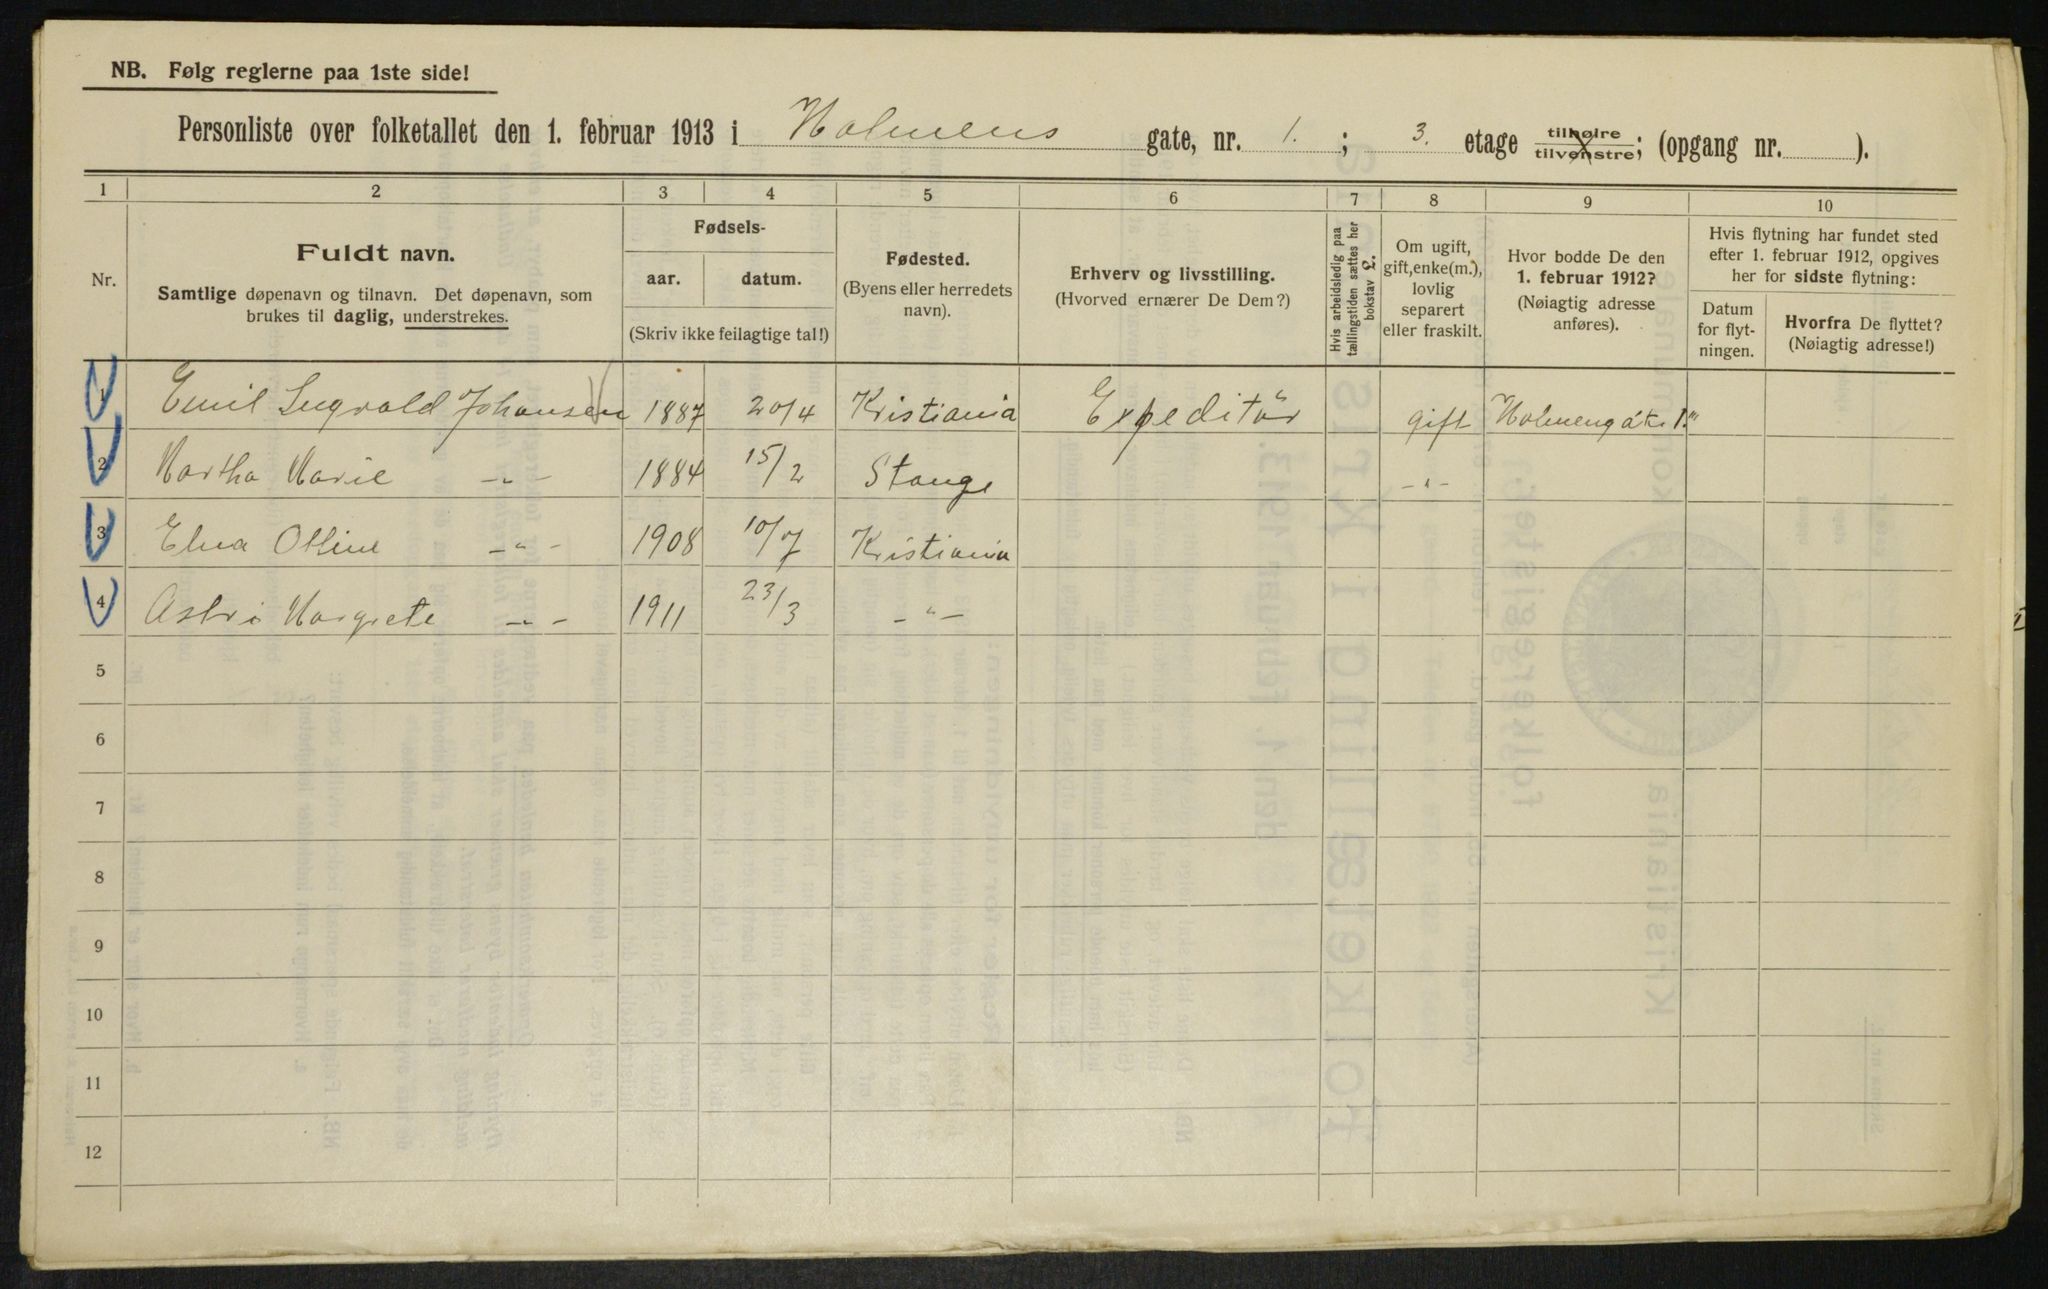 NB. Følg reglerne paa 1ste side!
Personliste over folketallet den 1. februar 1913 i Holmens gate, nr. 1. ; 3. etage tilhøire tilvenstre; (opgang nr. ).
1 2 3 4 5 6 7 8 9 10
Nr.
Fuldt navn.
Samtlige døpenavn og tilnavn. Det døpenavn, som
brukes til daglig, understrekes.
Fødsels-
aar. datum.
(Skriv ikke feilagtige tal!)
Fødested.
(Byens eller herredets
navn).
Erhverv og livsstilling.
(Hvorved ernærer De Dem?)
Hvis arbeidsledig paa
tællingstiden sættes her
bokstav L.
Om ugift,
gift, enke(m.),
lovlig
separert
eller fraskilt.
Hvor bodde De den
1. februar 1912?
(Nøiagtig adresse
anføres).
Hvis flytning har fundet sted
efter 1. februar 1912, opgives
her for sidste flytning:
Datum
for flyt-
ningen.
Hvorfra De flyttet?
(Nøiagtig adresse!)
1 Emil Ingvald Johansen 1887 20/4 Kristiania Expeditör gift Holmengat. 1.'''
2 Martha Marie -"- 1884 15/2 Stange -"-
3 Elna Otline -"- 1908 10/7 Kristiania
4 Astri Margrete -"- 1911 23/3 -"-
5
6
7
8
9
10
11
12